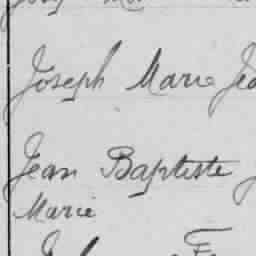 Joseph Marie
Jean Baptiste
Marie